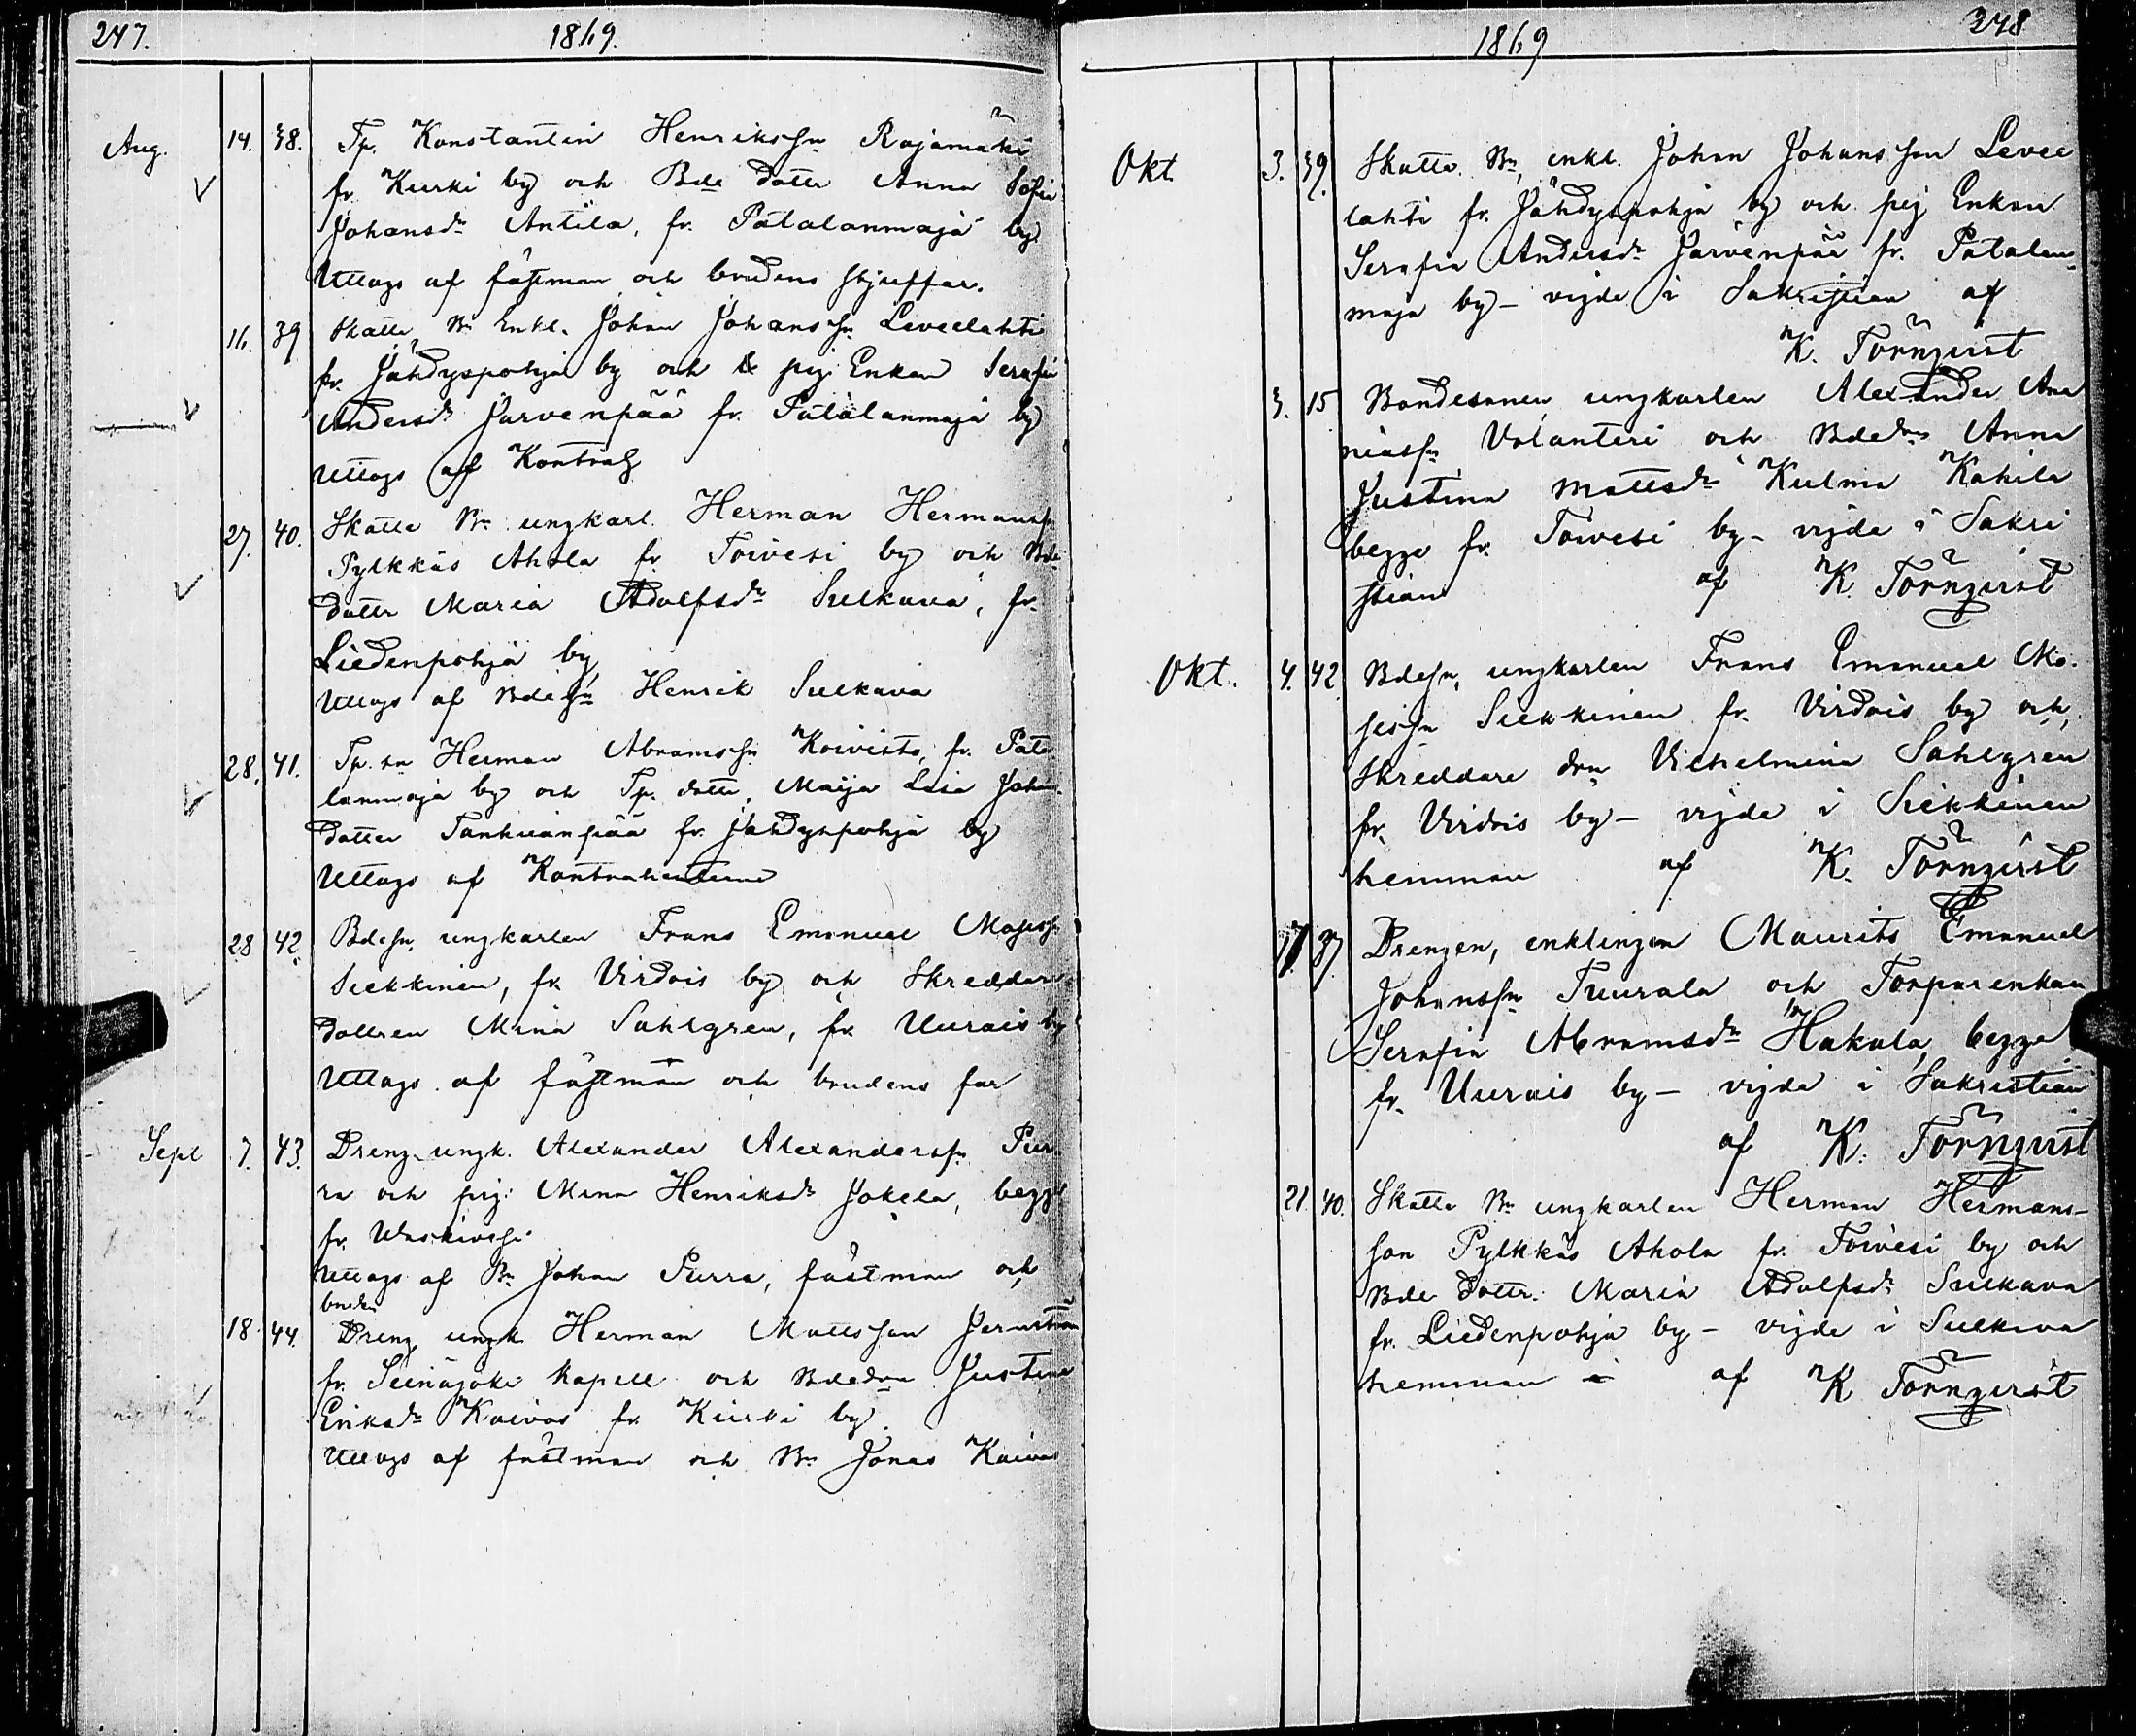 247. 1869.
Aug. 14. 38. Tp. Konstantin Henrikssn Rajamäki
fr. Kurki by och Bde dotter Anna Sofia
Johansdr Antila, fr. Patalanmaja by
Uttogs af fästman och brudens stjuffar.
16. 39 Skatte Bn Enkl. Johan Johanssn Leveelahti
fr. Jähdyspohja by och pig. Enkan Serafia
Andersdr Jarvenpää fr. Patalanmaja by
Uttogs af Kontrah
27. 40. Skatte Bn ungkarl. Herman Hermanssn
Pylkkäs Ahola fr. Toivesi by och Bde
dotter Maria Adolfsdr Sulkava, fr.
Liedenpohja by
Uttogs af Bde sn Henrik Sulkava
28. 41. Tp. sn Herman Abramssn Koivisto, fr. Pata
lanmaja by och Tp. dotter, Maija Lisa Johans
dotter Tanhuanpää fr. Jähdyspohja by
Uttogs af Kontrahenterne
28 42. Bdesn, ungkarlen Frans Emanuel Mosessn
Siekkinen, fr. Virdois by och Skreddare
dottren Mina Sahlgren, fr. Uurais by
Uttogs af fästman och brudens far
Sept 7. 43. Dreng ungk. Alexander Alexanderssn Pur
ra och pig: Mina Henriksdr Jokela, begge
fr. Waskivesi
Uttogs af Bn Johan Purra, fästman och
bruden
18. 44. Dreng ungk Herman Mattsson
fr. Seinäjoki Kapell och Bdedra Justina
Eriksdr Kaivos fr. Kurki by
Uttogs af fästman och Bn Jonas Kaivos
1869 248
Okt. 3. 39. Skatte Bn, enkl. Johan Johansson Levee
lahti fr. Jähdyspohja by och pig Enkan
Serafia Andersdr Jarvenpää fr. Patalan
maja by – vigde i Sakristian af
K. Törnqvist
3. 15 Bondesonen ungkarlen Alexander Ana
niassn Volanteri och Bdedra Anna
Justina Mattsdr Kulma Kahila
begge fr. Toivesi by – vigde i Sakri
stian af K. Törnqvist
Okt. 4. 42 Bdesn, ungkarlen Frans Emanuel Mo-
sessn Siekkinen fr. Virdois by och
Skreddare dra Vilhelmina Sahlgren
fr. Virdois by – vigde i Siekkinen
hemman af K. Törnqvist
17. 37. Drengen, enklingen Maurits Emanuel
Johanssn Tuurala och Torparenkan
Serafia Abramsdr Hakala, begge
fr. Uurais by – vigde i Sakristian
af K. Törnqvist
21. 40. Skatte Bn ungkarlen Herman Hermans-
son Pylkkäs Ahola fr. Toivesi by och
Bde dottr. Maria Adolfsdr Sulkava
fr. Liedenpohja by – vigde i Sulkava
hemman af K Törnqvist